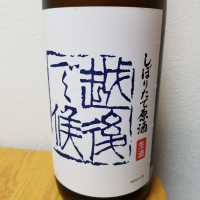 しぼりたて原酒
生酒
越後
で候